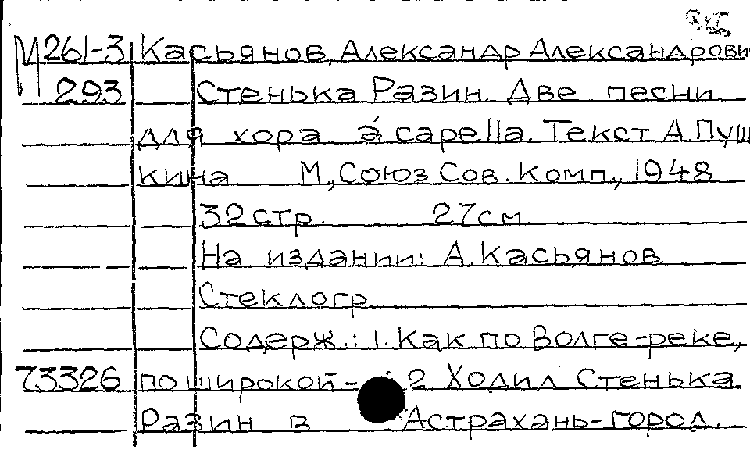 М261-3 Касьянов, Александр Александрови
293 Стенька Разин. Две песни
для хора a capella. Текст А. Пуш
кина М., Союз Сов. Комп., 1948
32 стр 27 см
На издании: А. Касьянов
Стеклогр
Содерж.: 1. Как по Волге-реке,
73326 по широкой- 2 Ходил Стенька
Разин в Астрахань-город.